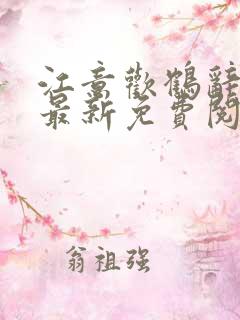 江意歡鶴辭
最新免費閱
翁祖强